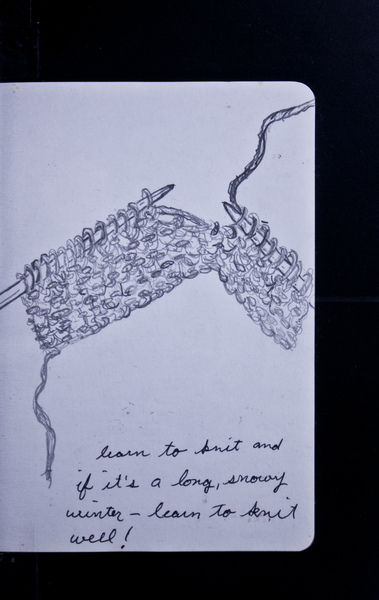 learn to knit and
if it's a long, snowy
winter – learn to knit
well!